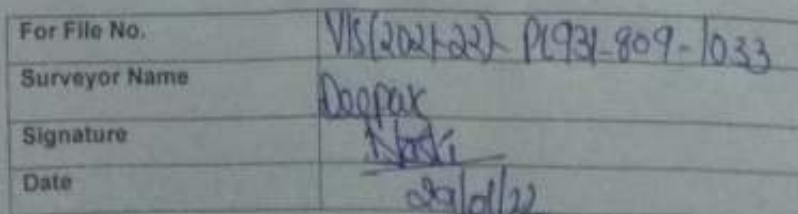 For File No. VIS(2021-22)- PL931-809-1033
Surveyor Name Deepak
Signature
Date 29/01/22